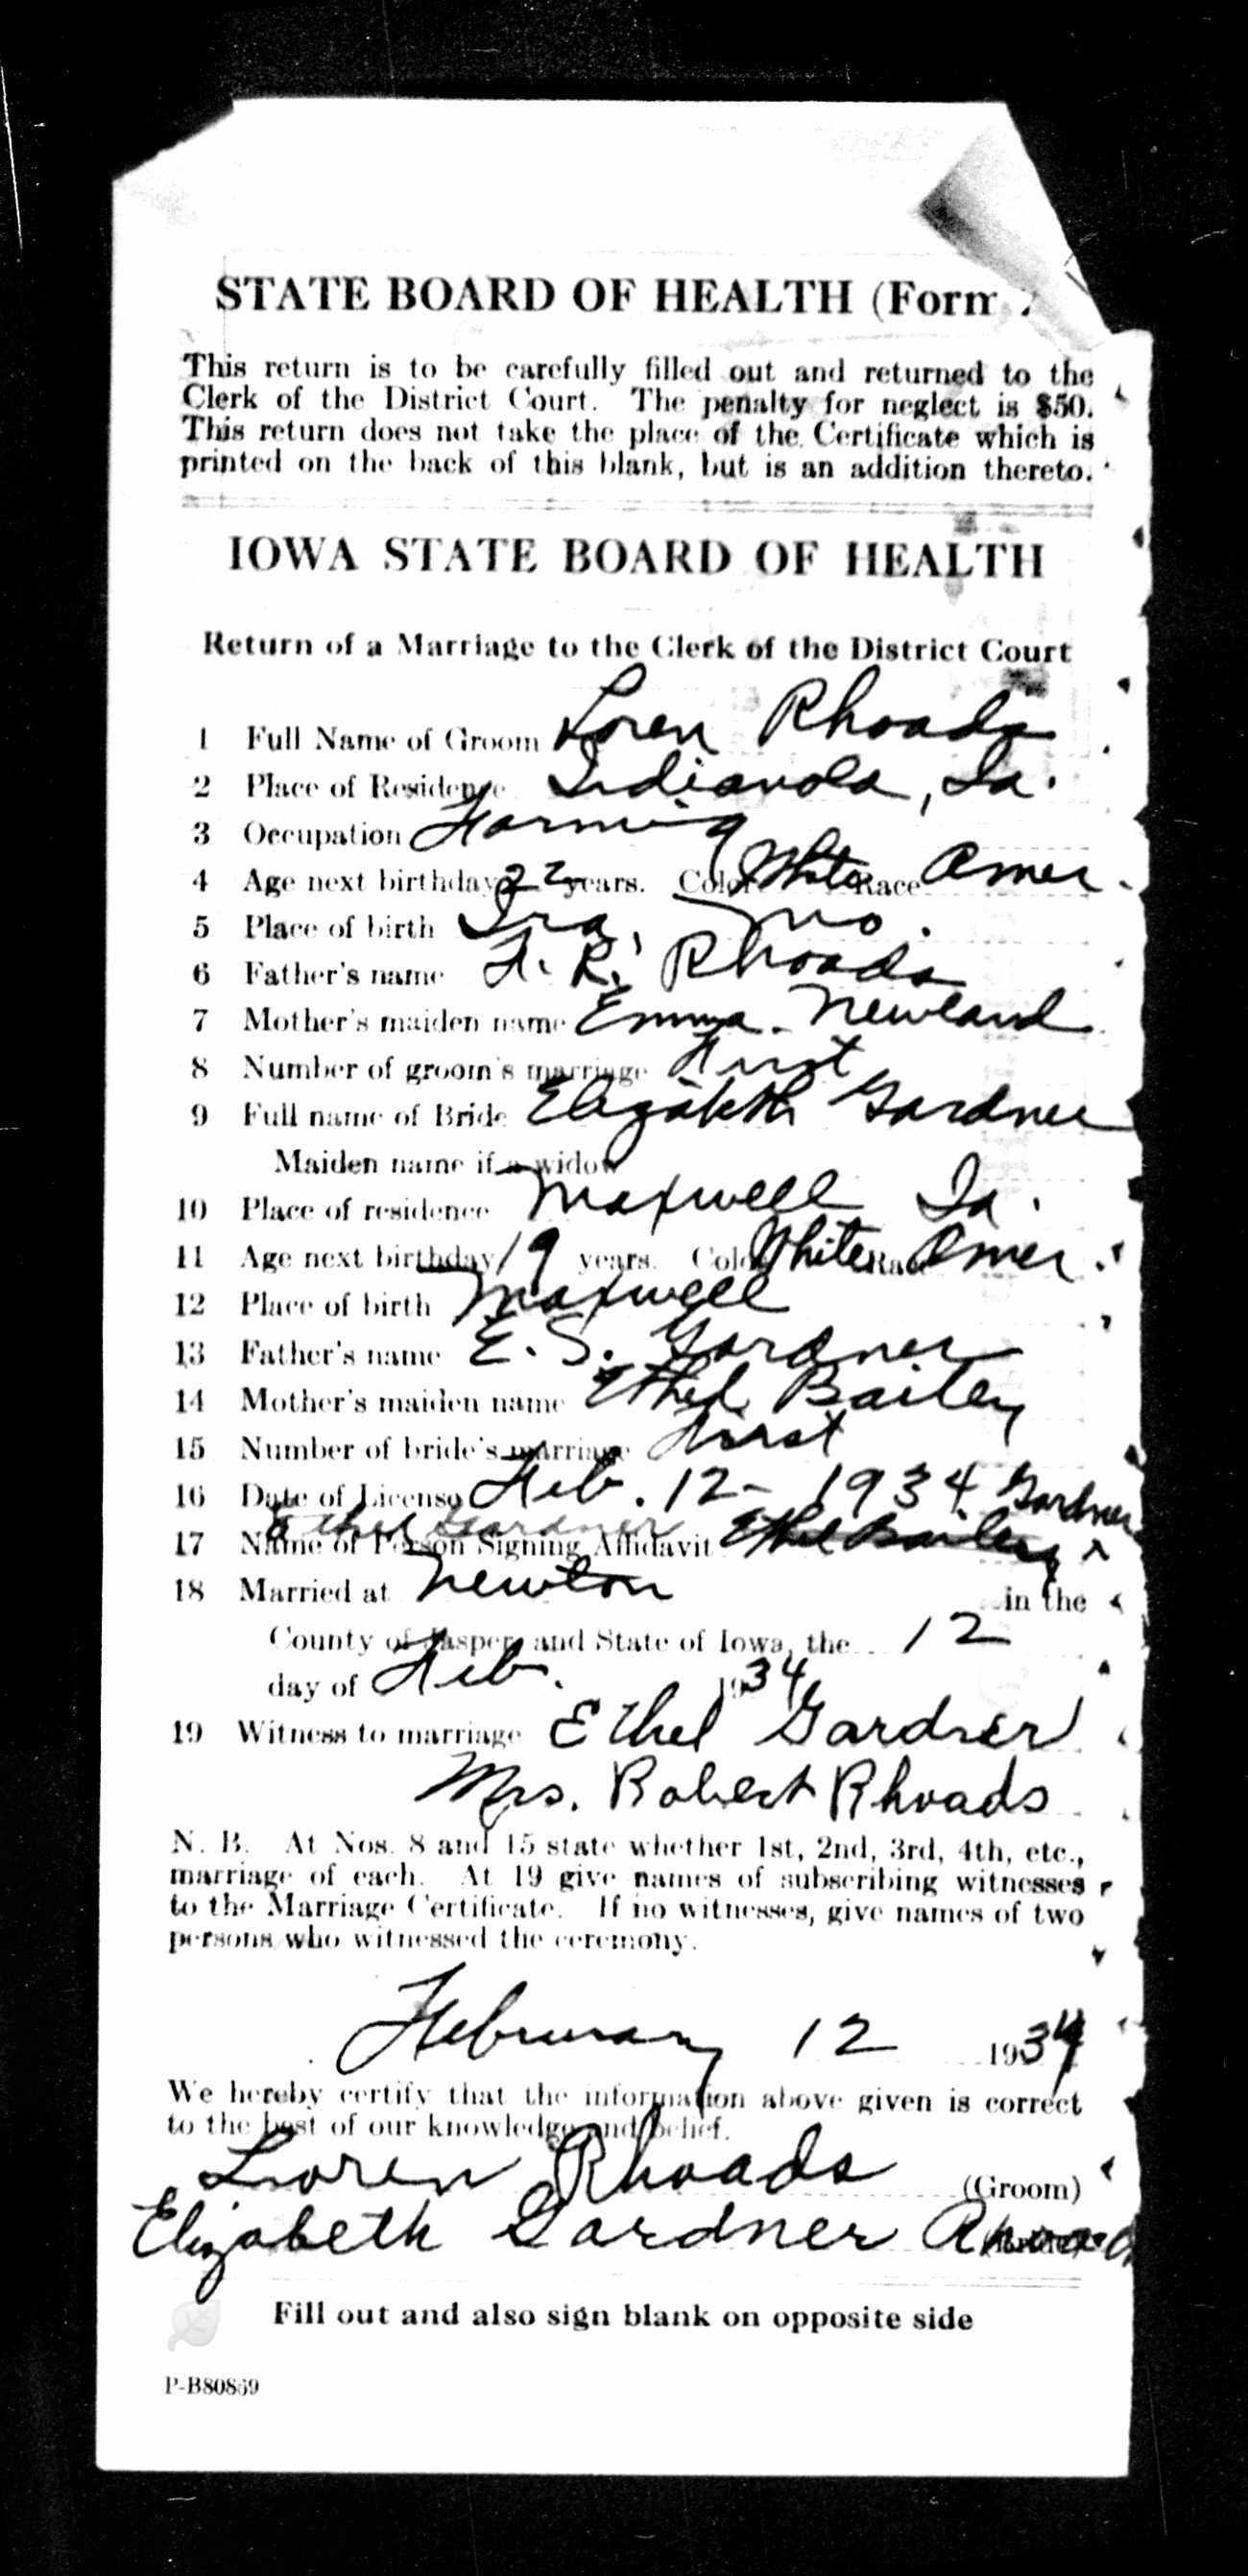 STATE BOARD OF HEALTH (Form
This return is to be carefully filled out and returned to the
Clerk of the District Court. The penalty for neglect is $50.
This return does not take the place of the Certificate which is
printed on the back of this blank, but is an addition thereto.
IOWA STATE BOARD OF HEALTH
Return of a Marriage to the Clerk of the District Court
1 Full Name of Groom Loren Rhoads
2 Place of Residence Indianola, Ia.
3 Occupation Farming
4 Age next birthday 22 years. Color White Race Amer.
5 Place of birth Ira, Mo.
6 Father's name F. R. Rhoads
7 Mother's maiden name Emma Newland
8 Number of groom's marriage First
9 Full name of Bride Elizabeth Gardner
Maiden name if a widow
10 Place of residence Maxwell Ia.
11 Age next birthday 19 years. Color White Race Amer.
12 Place of birth Maxwell
13 Father's name E. S. Gardner
14 Mother's maiden name Ethel Bailey
15 Number of bride's marriage First
16 Date of License Feb. 12 - 1934 Gardner
Ethel Gardner
17 Name of Person Signing Affidavit Ethel Bailey ^
18 Married at Newton in the
County of Jasper, and State of Iowa, the 12
day of Feb. 1934
19 Witness to marriage Ethel Gardner
Mrs. Robert Rhoads
N. B. At Nos. 8 and 15 state whether 1st, 2nd, 3rd, 4th, etc.,
marriage of each. At 19 give names of subscribing witnesses
to the Marriage Certificate. If no witnesses, give names of two
persons who witnessed the ceremony.
February 12 1934
We hereby certify that the information above given is correct
to the best of our knowledge and belief.
Loren Rhoads (Groom)
Elizabeth Gardner Rhoads
Fill out and also sign blank on opposite side
P-B80869